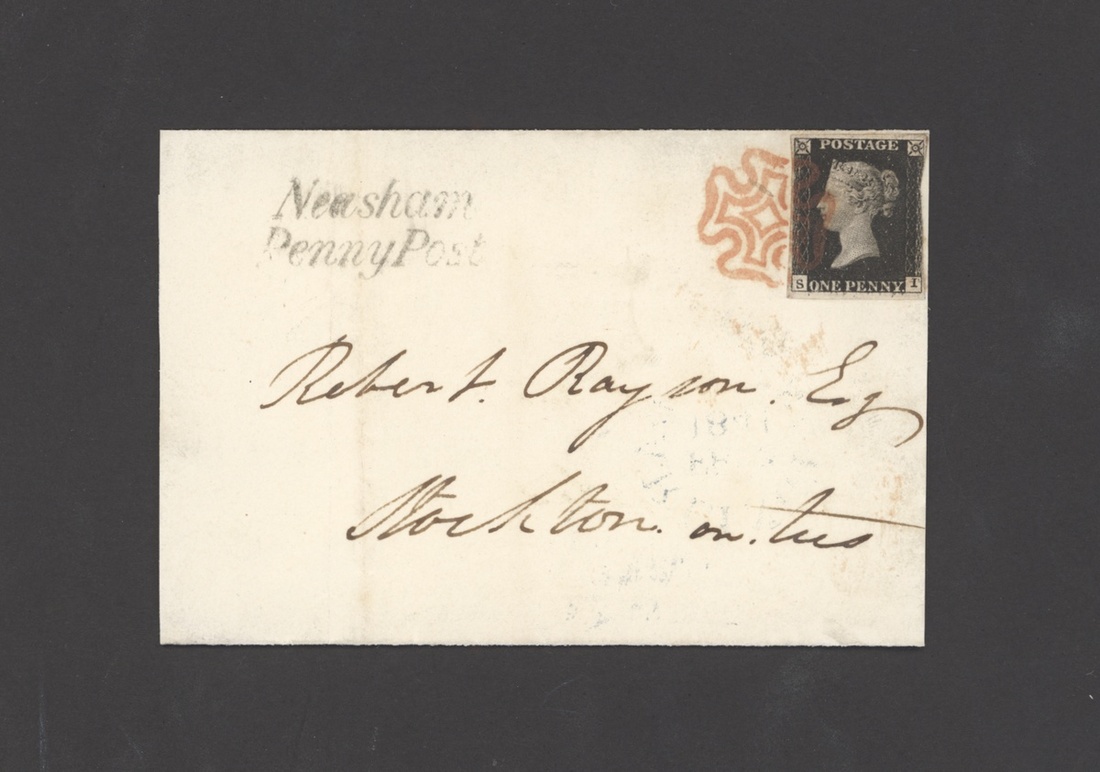 Neasham
Penny Post
POSTAGE
S ONE PENNY I
Robert. Rayson. Esq
Stockton. on. tees
18